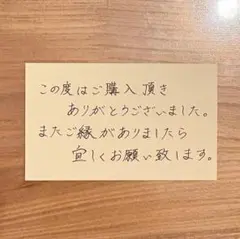 この度はご購入頂き
ありがとうございました。
またご縁がありましたら
宜しくお願い致します。